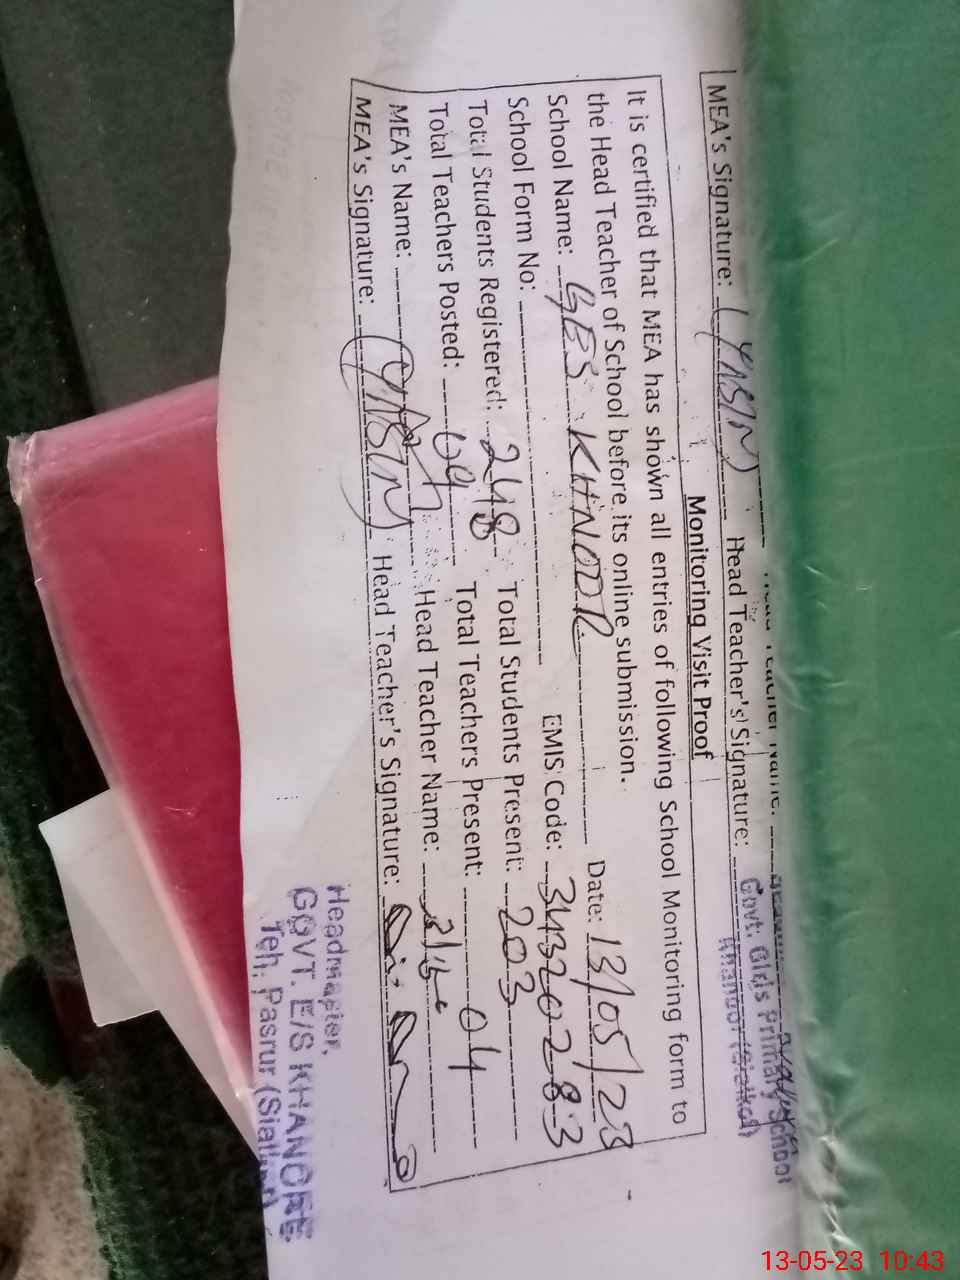 MEA's Signature: YASIN Head Teacher's Signature:
Govt. Girls Primary School
Khanoor (Sialkot)
Monitoring Visit Proof
It is certified that MEA has shown all entries of following School Monitoring form to
the Head Teacher of School before its online submission.
School Name: GES KHNORE Date: 13/05/23
School Form No: EMIS Code: 34320283
Total Students Registered: 248 Total Students Present: 203
Total Teachers Posted: 09 Total Teachers Present: 04
MEA's Name: Head Teacher Name:
MEA's Signature: YASIN Head Teacher's Signature:
Headmaster.
GOVT. E/S KHANORE
Teh. Pasrur (Sialkot)
13-05-23 10:43